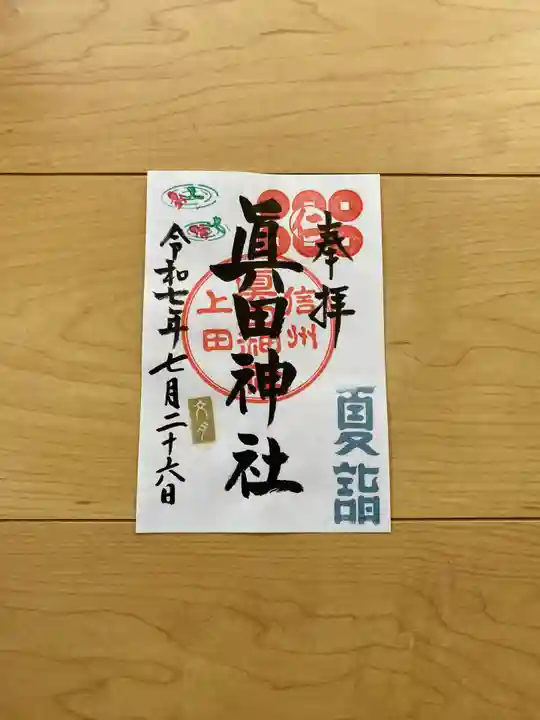 奉拝
仁
夏詣
信州
眞田神社
上田
眞田神社
令和七年七月二十六日